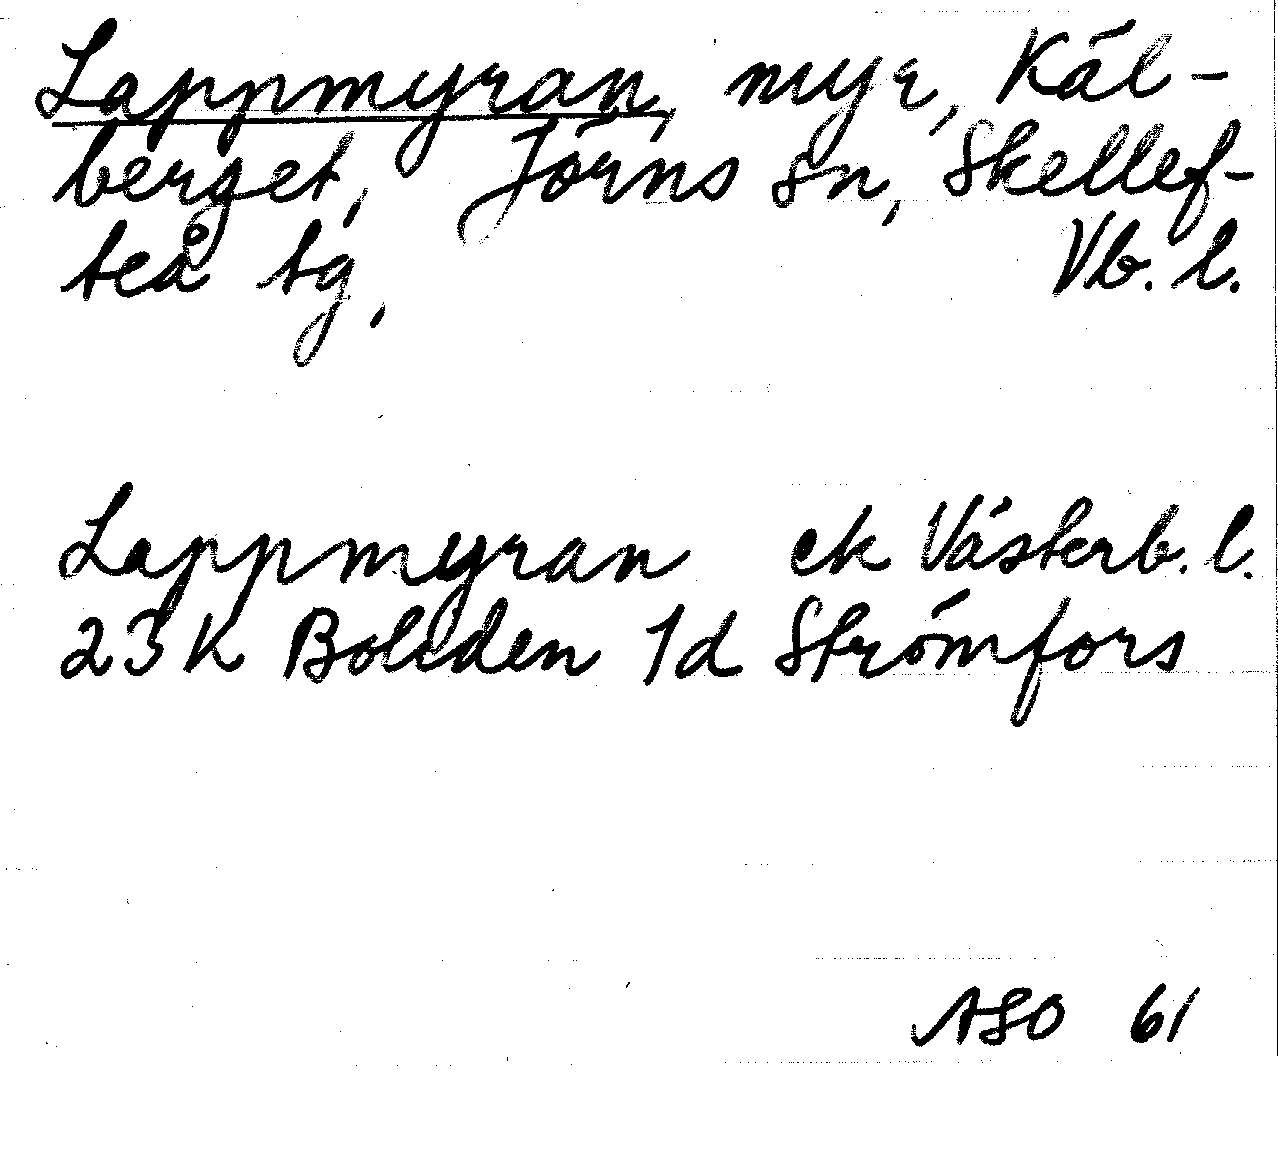 Lappmyran, myr, Käl-
berget, Jörns sn, Skellef-
teå tg, Vb. l.
Lappmyran ek Västerb. l.
23K Boliden 1d Strömfors
ASO 61